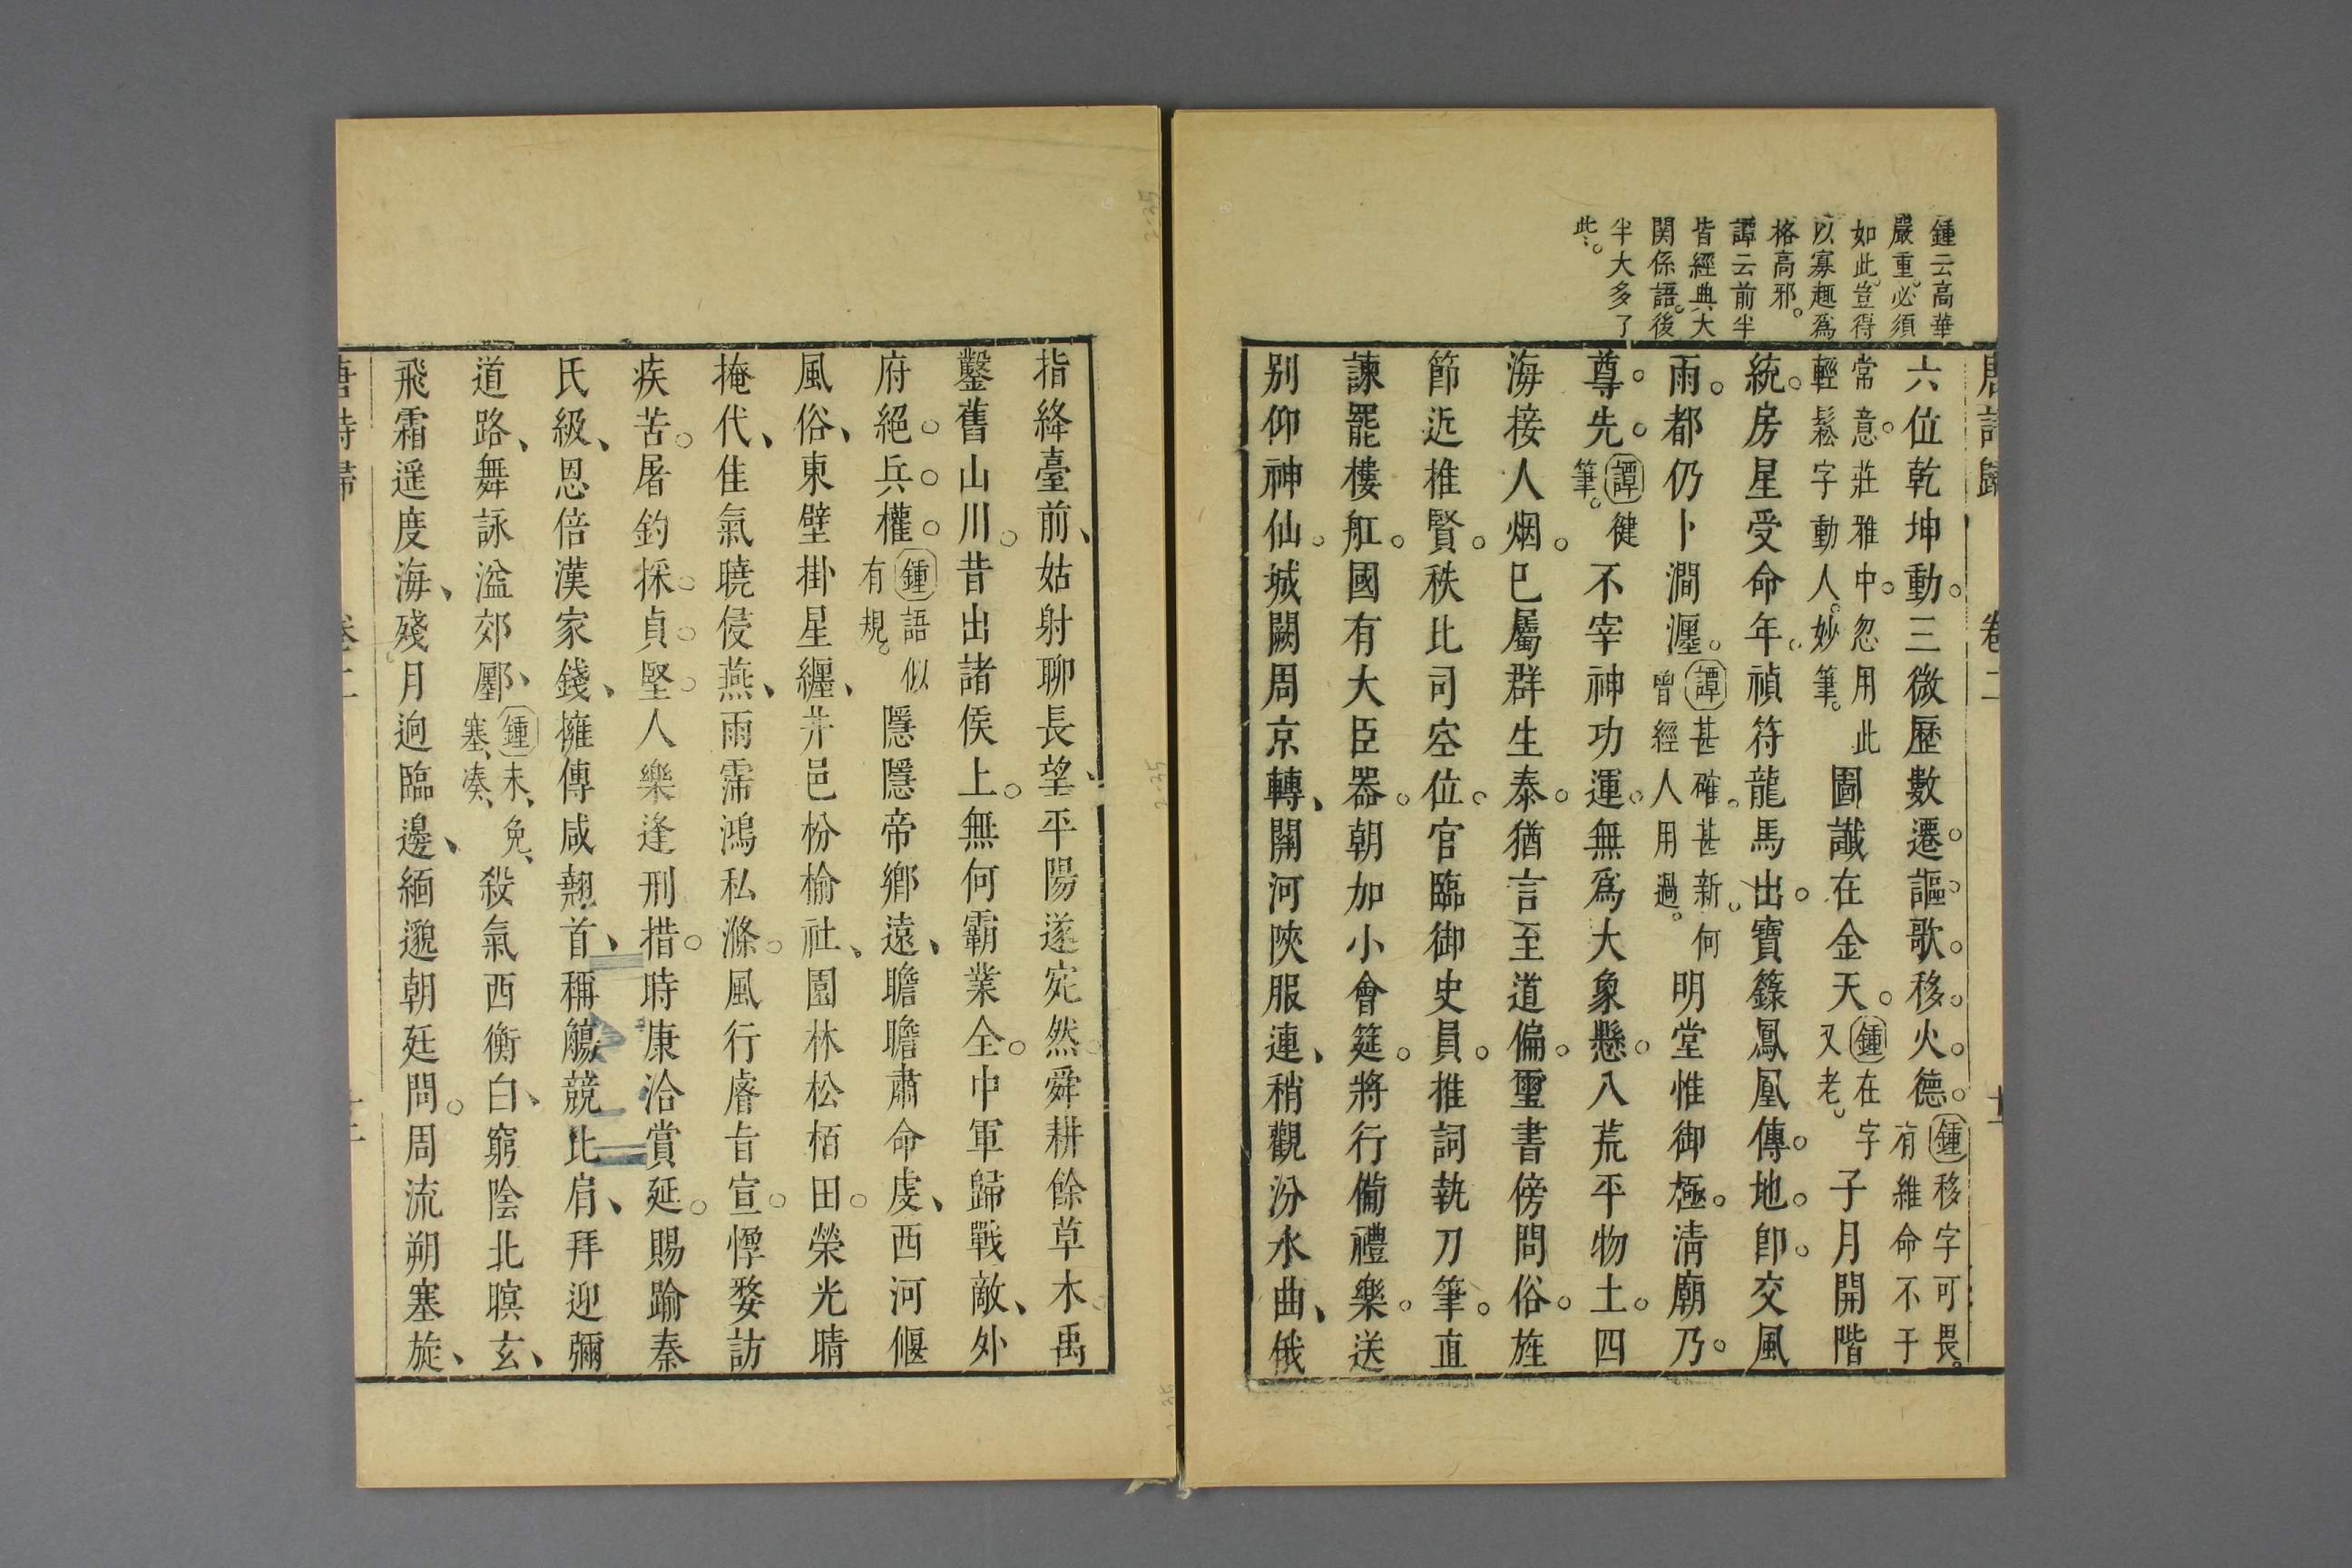 鍾云高華
嚴重必須
如此豈得
以寡趣爲
格高邪。
譚云前半
皆經典大
関係語。後
半大多了
此。
唐詩歸 卷二
六位乾坤動。三微歷數遷。謳歌。移。火。德。鍾移字可畏。有維命不于
常意。莊雅中。忽用此輕鬆字動人。妙筆。圖讖在金天。鍾在字又老。子月開階
統。房星受命年。禎符龍馬出。寶籙鳳凰傳。地。卽。交風
雨。都仍卜澗瀍。譚甚確。甚新。何曾經人用過。明堂惟御極。淸廟乃。
尊。先。譚健筆。不宰神功運。無爲大象懸。八荒平物土。四
海接人烟。巳屬群生泰。猶言至道偏。璽書傍問俗。旌
節近推賢。秩比司空位。官臨御史員。推詞執刀筆。直
諫罷樓舡。國有大臣器。朝加小會筵。將行備禮樂。送
别仰神仙。城闕周京轉、關河陝服連、稍觀汾水曲、俄
指絳臺前、姑射聊長望、平陽遂宛然。舜耕餘草木。禹
鑿舊山川。昔出諸侯上。無何霸業全。中軍歸戰敵、外
府絕。兵。權。鍾語似有規。隱隱帝鄕遠、瞻瞻肅命虔、西河偃
風俗、東壁掛星纏、井邑枌榆社、園林松栢田。榮光晴
掩代、佳氣曉侵燕、雨霈鴻私滌。風行睿旨宣。惸嫠訪
疾苦。屠釣採。貞。堅。人樂逢刑措。時康洽賞延。賜踰秦
氏級、恩倍漢家錢、擁傳咸翹首、稱觴競比肩、拜迎彌
道路、舞詠溢郊鄽、鍾未、免、塞、凑、殺氣西衡白、窮陰北暝玄、
飛霜遥度海、殘月逈臨邊、緬邈朝廷問。周流朔塞旋、
唐詩歸 卷二